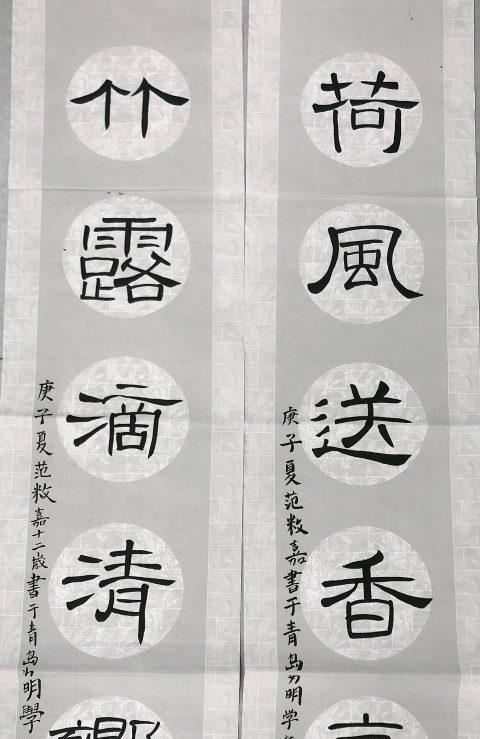 荷風送香
庚子夏范敉嘉書于青島为明学
竹露滴清
庚子夏范敉嘉十二歲書于青島为明學